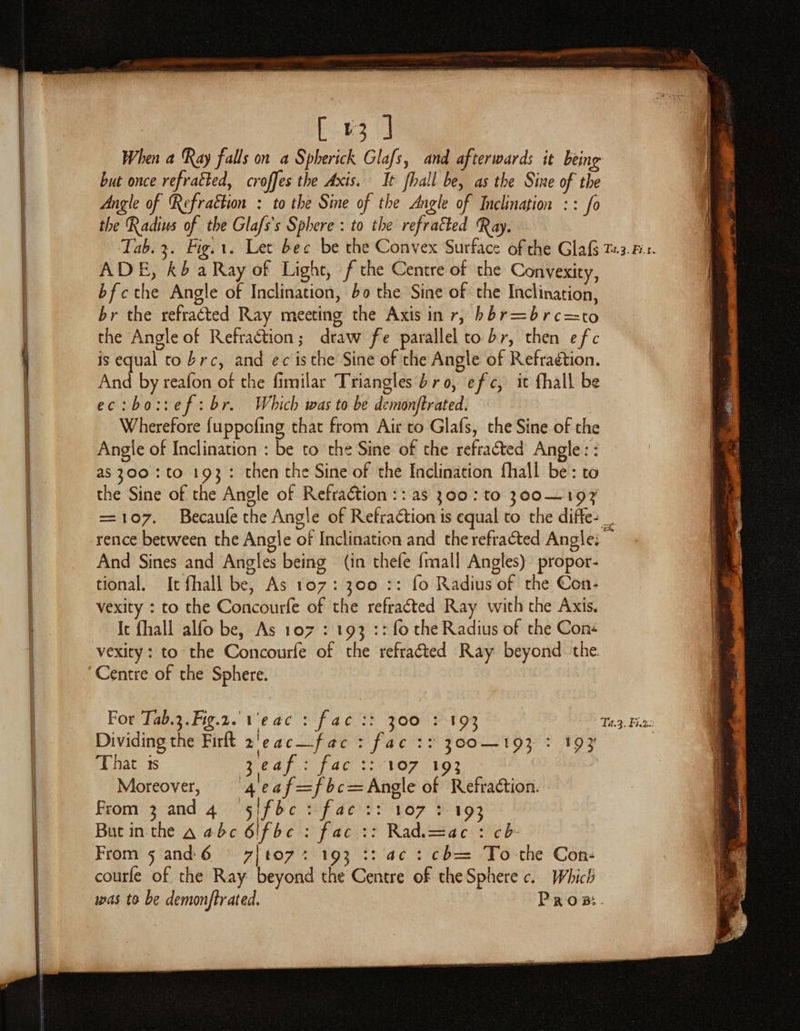 [ 13 ]
When a Ray falls on a Spherick Glaſs, and afterwards it being
but once refracted, croſſes the Axis. It ſhall be, as the Sine of the
Angle of Refraction : to the Sine of the Angle of Inclination :: ſo
the Radius of the Glaſs's Sphere : to the refracted Ray.
Tab. 3. Fig. 1. Let bec be the Convex Surface of the Glaſs Ta.3.Fi.1.
ADE, kb a Ray of Light, f the Centre of the Convexity,
bfc the Angle of Inclination, bo the Sine of the Inclination,
br the refracted Ray meeting the Axis in r, hbr=brc=to
the Angle of Refraction; draw fe parallel to br, then efc
is equal to brc, and ec is the Sine of the Angle of Refraction.
And by reaſon of the ſimilar Triangles bro, efc, it ſhall be
ec : bo :: ef : br. Which was to be demonſtrated.
Wherefore ſuppoſing that from Air to Glaſs, the Sine of the
Angle of Inclination : be to the Sine of the refracted Angle : :
as 300 : to 193 : then the Sine of the Inclination ſhall be : to
the Sine of the Angle of Refraction :: as 300 : to 300—193
=107. Becauſe the Angle of Refraction is equal to the diffe-
rence between the Angle of Inclination and the refracted Angle.
And Sines and Angles being (in theſe ſmall Angles) propor-
tional. It ſhall be, As 107 : 300 :: ſo Radius of the Con-
vexity : to the Concourſe of the refracted Ray with the Axis.
It ſhall alſo be, As 107 : 193 :: ſo the Radius of the Con-
vexity : to the Concourſe of the refracted Ray beyond the
Centre of the Sphere.
For Tab.3.Fig.2. 1|eac : fac :: 300 : 193 Ta.3.Fi.2.
Dividing the Firſt 2|eac—fac : fac :: 300—193 : 193
That is 3|eaf : fac :: 107 193
Moreover, 4|eaf=fbc= Angle of Refraction.
From 3 and 4 5|fbc : fac :: 107 : 193
But in the △ abc 6|fbc : fac :: Rad.=ac : cb
From 5 and 6 7|107 : 193 :: ac : cb= To the Con-
courſe of the Ray beyond the Centre of the Sphere c. Which
was to be demonſtrated. PROB.